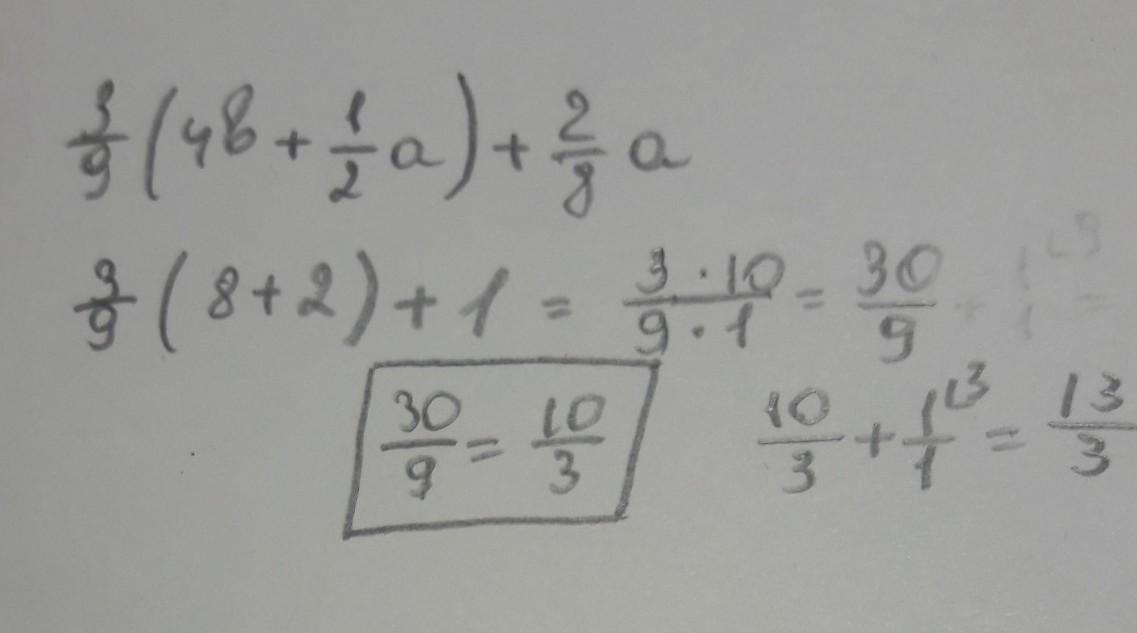 3/9 (4в + 1/2 a) + 2/8 a
3/9 (8 + 2) + 1 = 3 · 10 / 9 · 1 = 30/9
30/9 = 10/3
10/3 + 1/1 ⌊3 = 13/3